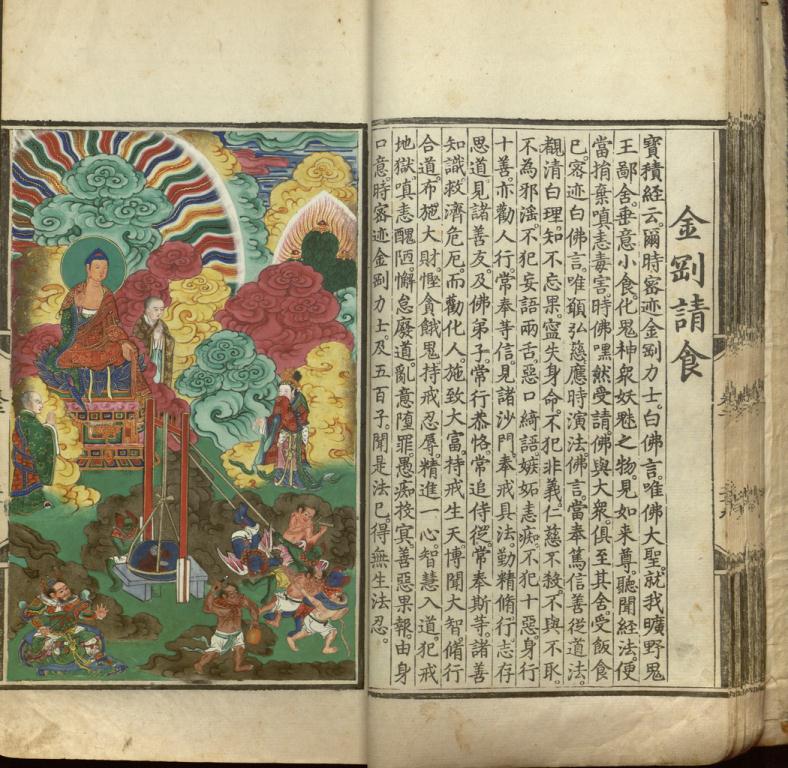 金剛請食
寶積經云。爾時密迹金剛力士。白佛言。唯佛大聖。就我曠野鬼
王鄙舍。垂意小食。化鬼神衆妖魅之物。見如來尊。聽聞經法。便
當捐棄嗔恚毒害。時佛嘿然受請。佛與大衆。俱至其舍。受飯食
已。密迹白佛言。唯願弘慈。應時演法。佛言。當奉篤信善從道法。
覩清白理。知不忘果。寧失身命。不犯非義。仁慈不殺。不與不取。
不為邪淫。不犯妄語兩舌。惡口綺語。嫉妬恚痴。不犯十惡。身行
十善。亦勸人行。常奉等信。見諸沙門。奉戒具法。勤精脩行。志存
思道。見諸善友。及佛弟子。常行恭恪。常追侍從。常奉斯等。諸善
知識。救濟危厄。而勸化人。施致大富。持戒生天。博聞大智。脩行
合道。布施大財。慳貪餓鬼。持戒忍辱。精進一心。智慧入道。犯戒
地獄。嗔恚醜陋。懈怠廢道。亂意墮罪。愚痴投冥。善惡果報。由身
口意。時密迹金剛力士。及五百子。聞是法已。得無生法忍。